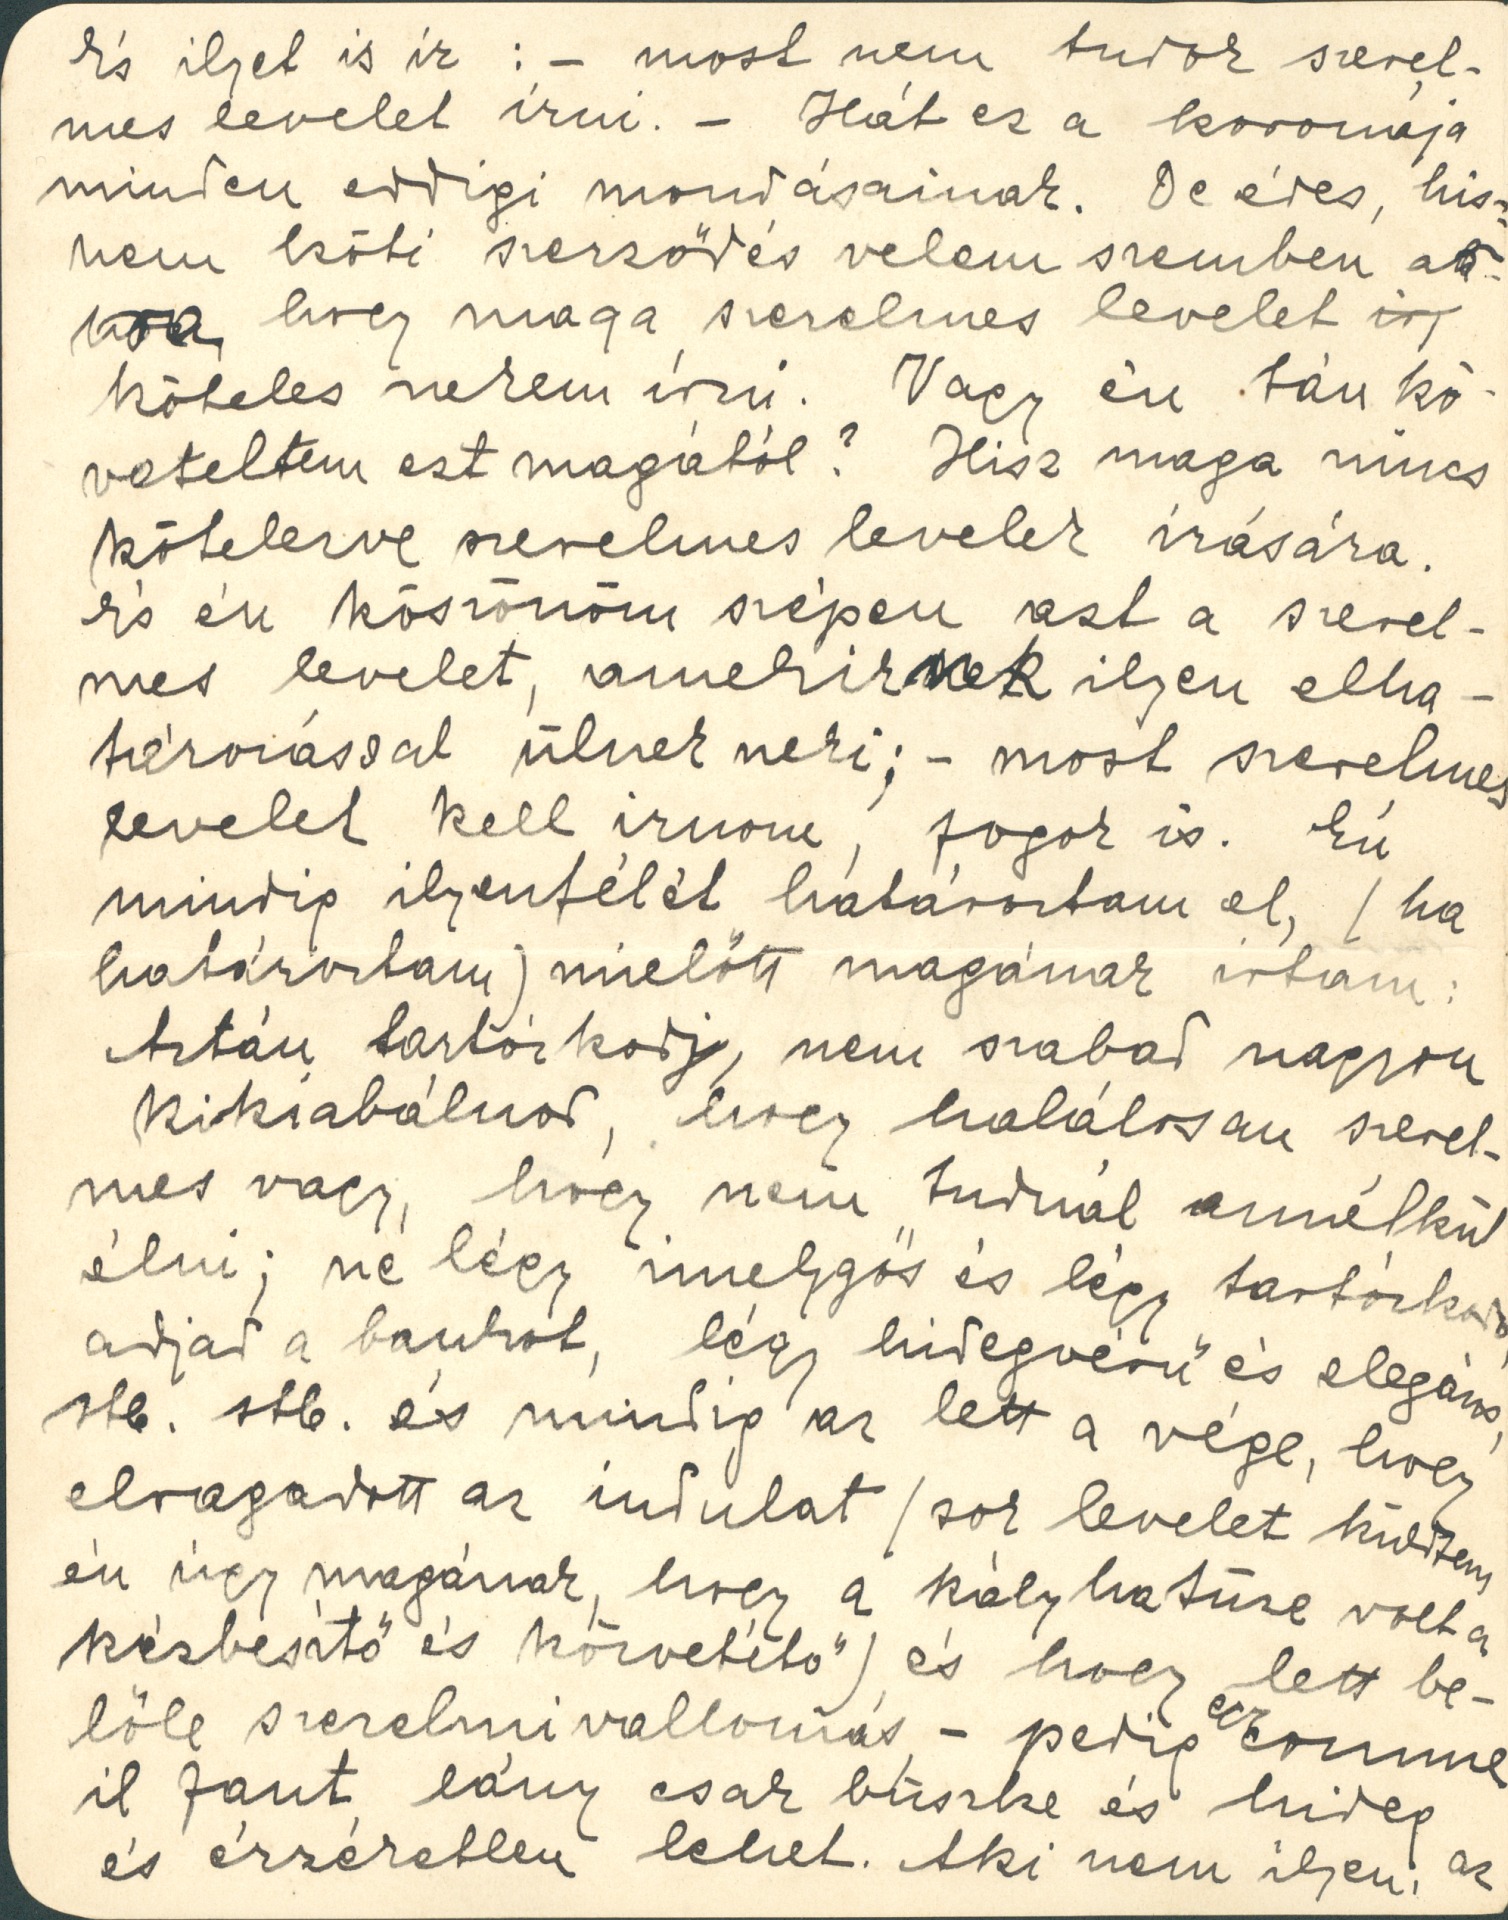 És ilyet is ir : – most nem tudok szerel-
mes levelet írni. – Hát ez a koronája
minden eddigi mondásainak. De édes, his-
nem köti szerződés velem szemben
hogy maga szerelmes levelet irj
köteles nekem írni. Vagy én tán kö-
veteltem ezt magától? Hisz maga nincs
kötelezve szerelmes levelek írására.
És én köszönöm szépen azt a szerel-
mes levelet, amelyiknek ilyen elha-
tározással ülnek neki; – most szerelmes
levelet kell irnom, fogok is. Én
mindig ilyenfélét határoztam el, (ha
határoztam) mielőtt magának írtam:
Aztán tartózkodj, nem szabad nagyon
kikiabálnod, hogy halálosan szerel-
mes vagy, hogy nem tudnál annélkül
élni; ne légy émelygős és légy tartózkodó,
adjad a bankot, légy hidegvérű és elegáns,
stb. stb. és mindig az lett a vége, hogy
elragadott az indulat (sok levelet küldtem
én úgy magának, hogy a kályhatüze volt a
kézbesítő és közvetítő) és hogy lett be-
lőle szerelmi vallomás, – pedig egy comme
il faut lány csak büszke és hideg
és érzéketlen lehet. Aki nem ilyen, az